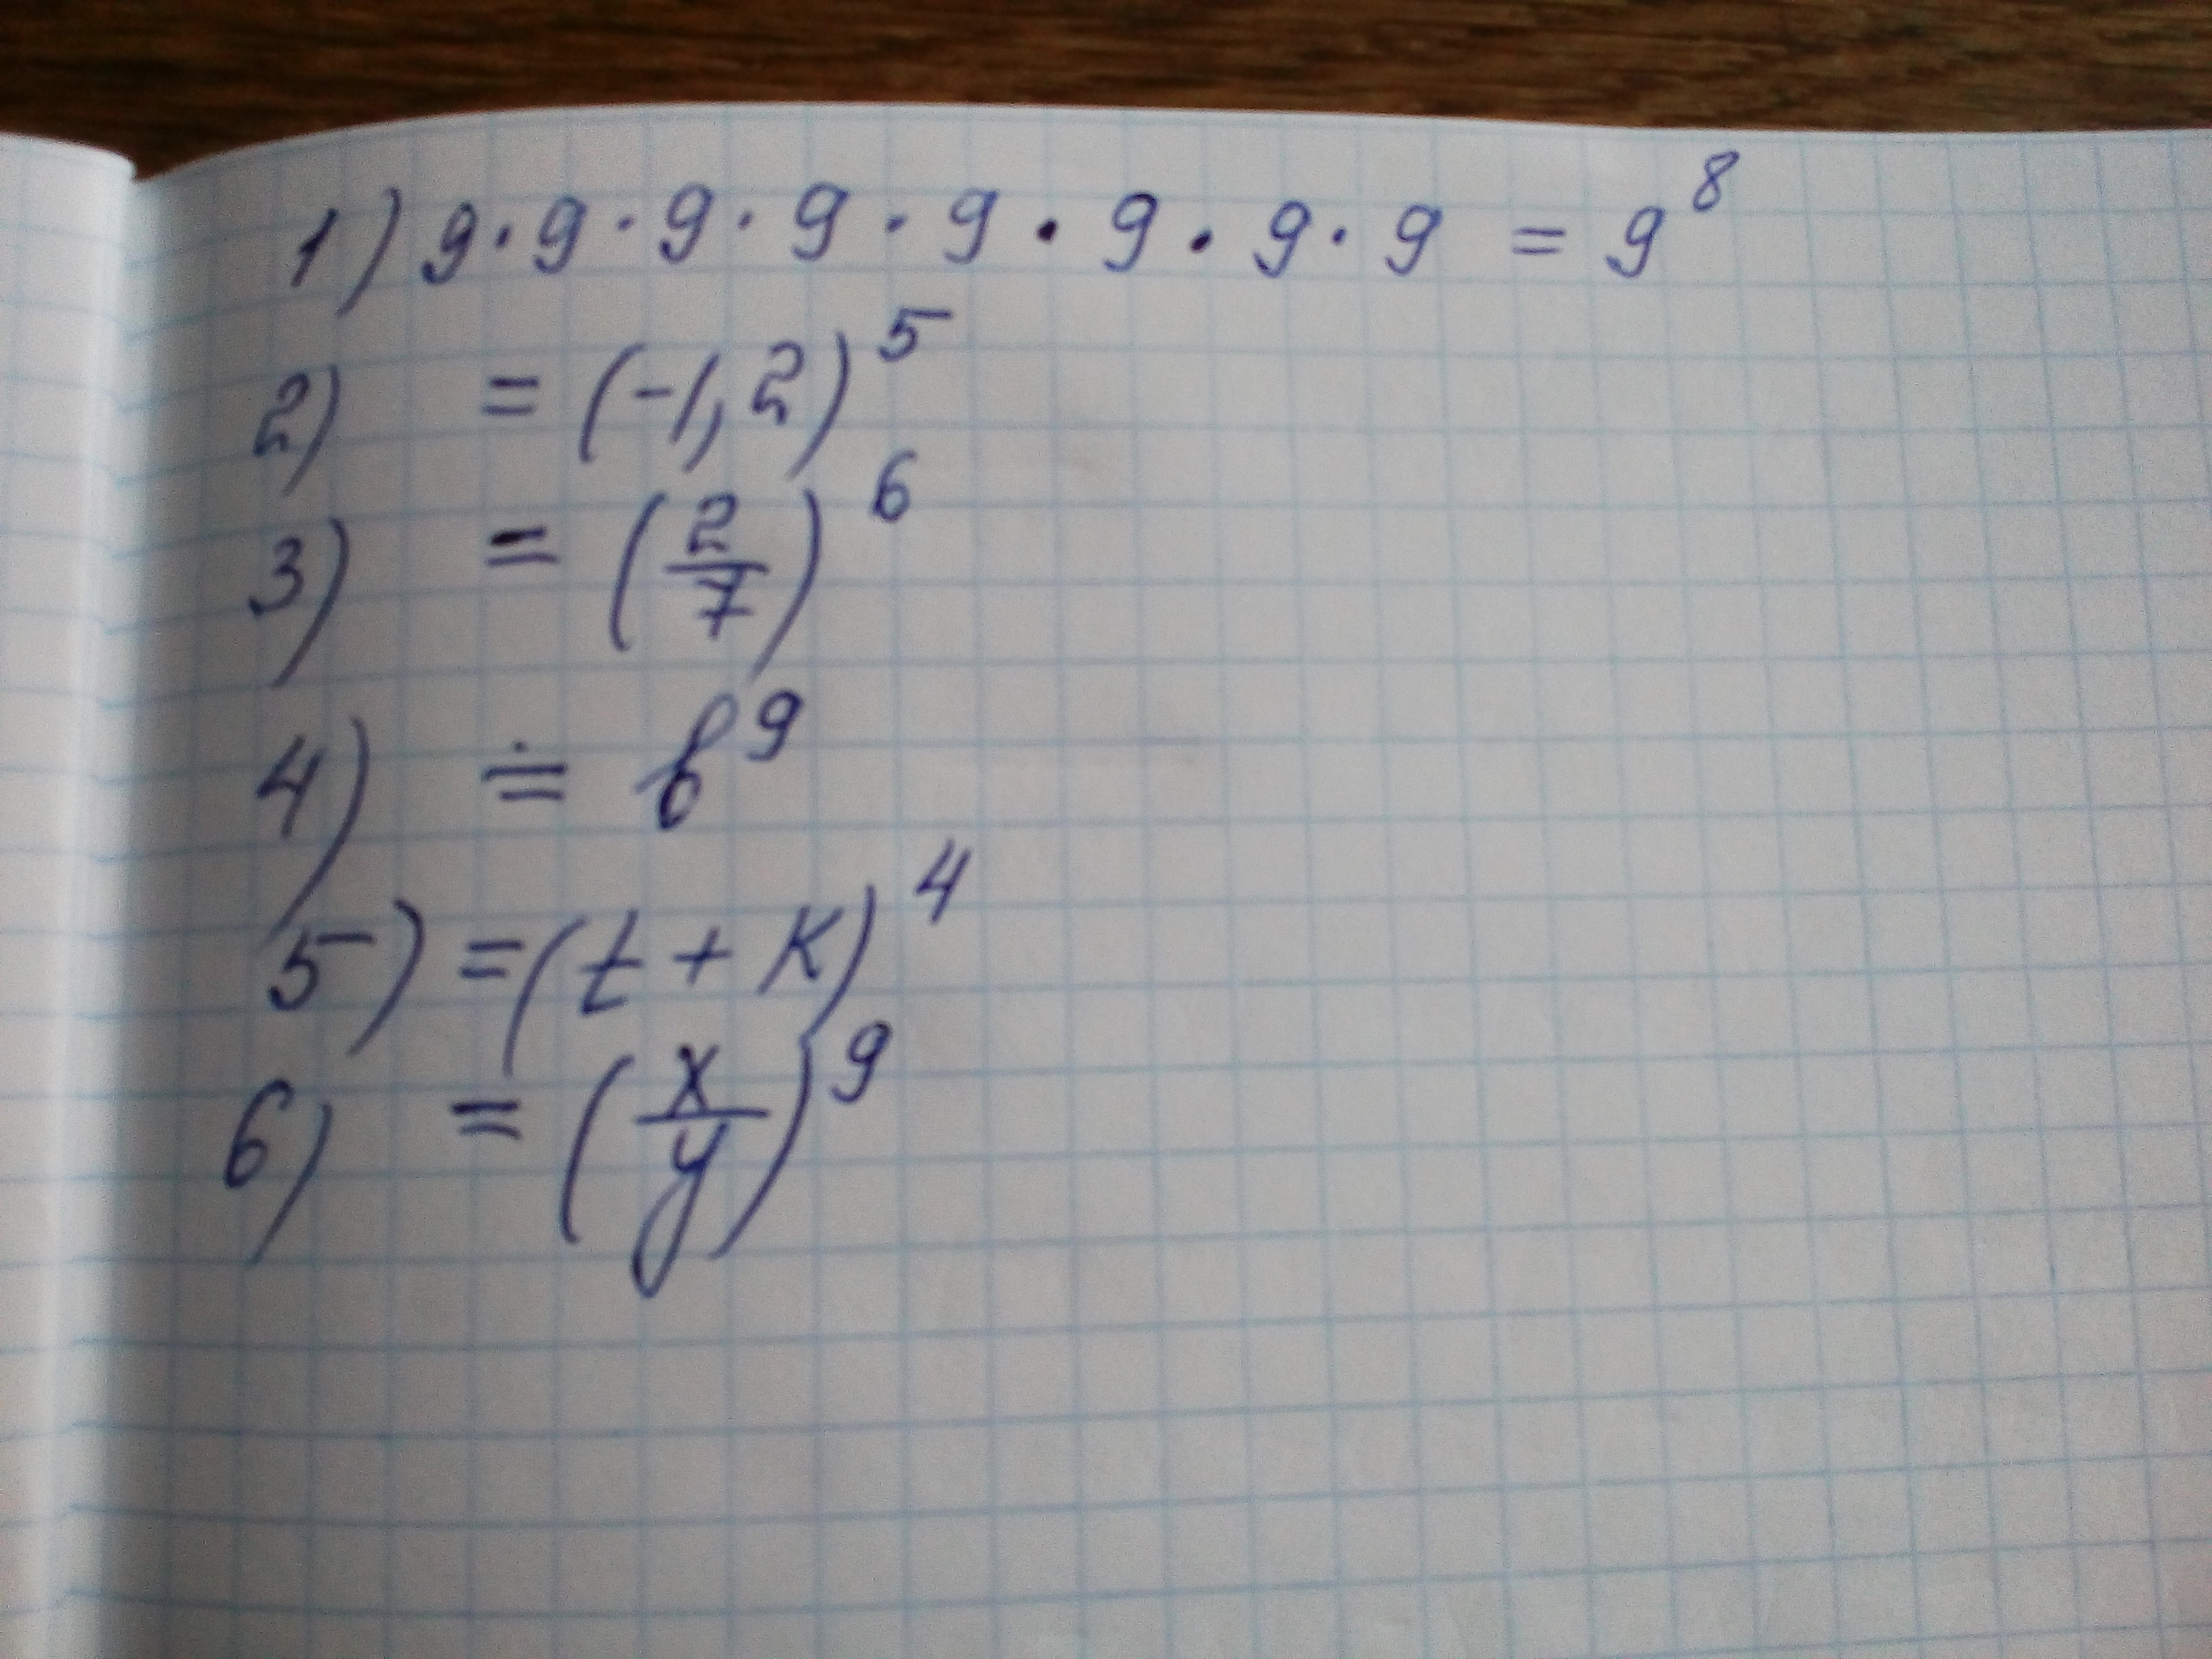 1) 9 · 9 · 9 · 9 · 9 · 9 · 9 · 9 = 9⁸
2) = (-1,2)⁵
3) = (2/7)⁶
4) = b⁹
5) = (t + k)⁴
6) = (x/y)⁹